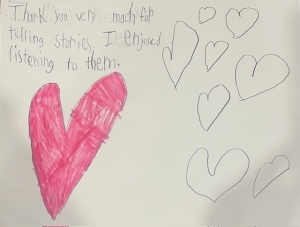 Thank you very much for
telling stories. I enjoyed
listening to them.